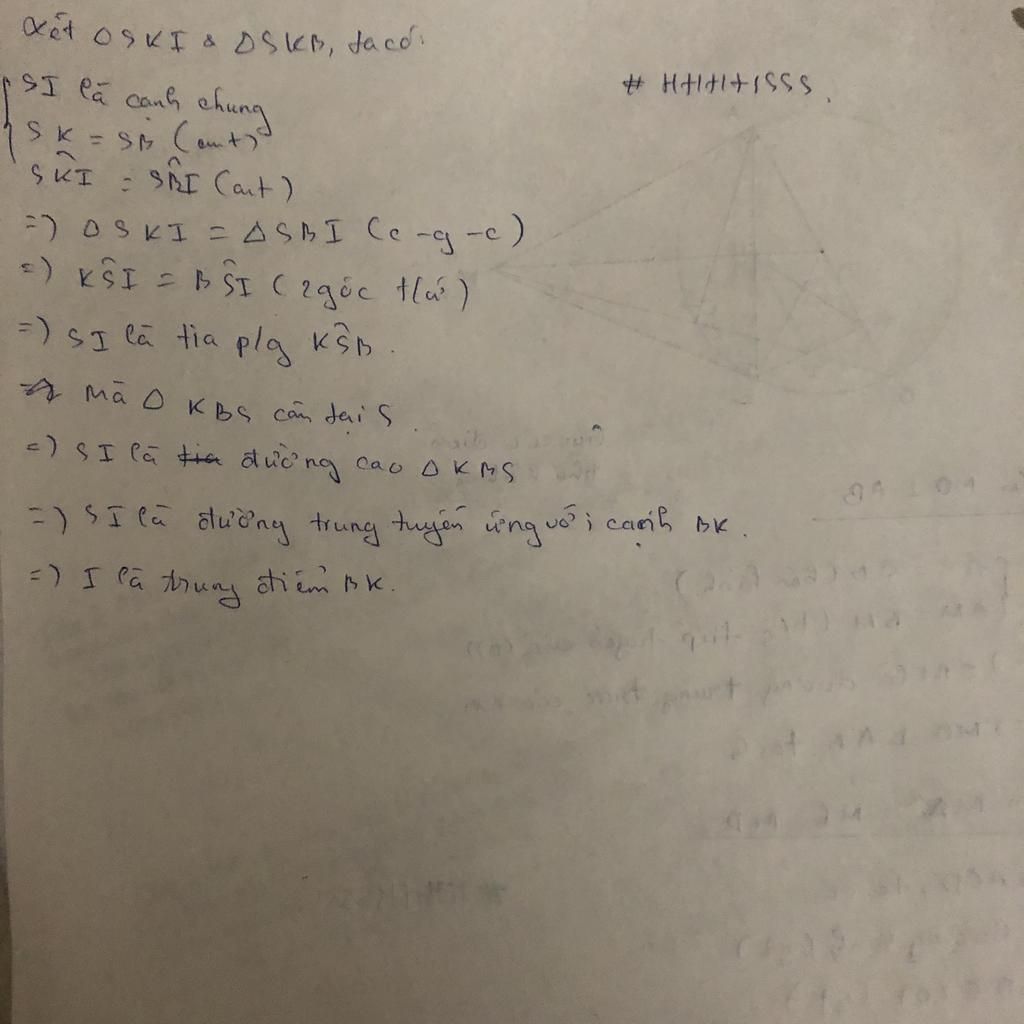 Xét Δ SKI & Δ SKB, ta có:
# HHHHSSS.
SI là cạnh chung
SK = SB (cmt)
SK̂I = SB̂I (cmt)
=) Δ SKI = Δ SBI (c-g-c)
=) KŜI = BŜI (2 góc t/ứ)
=) SI là tia p/g KŜB.
Mà Δ KBS cân tại S.
=) SI là đường cao Δ KBS
=) SI là đường trung tuyến ứng với cạnh BK.
=) I là trung điểm BK.